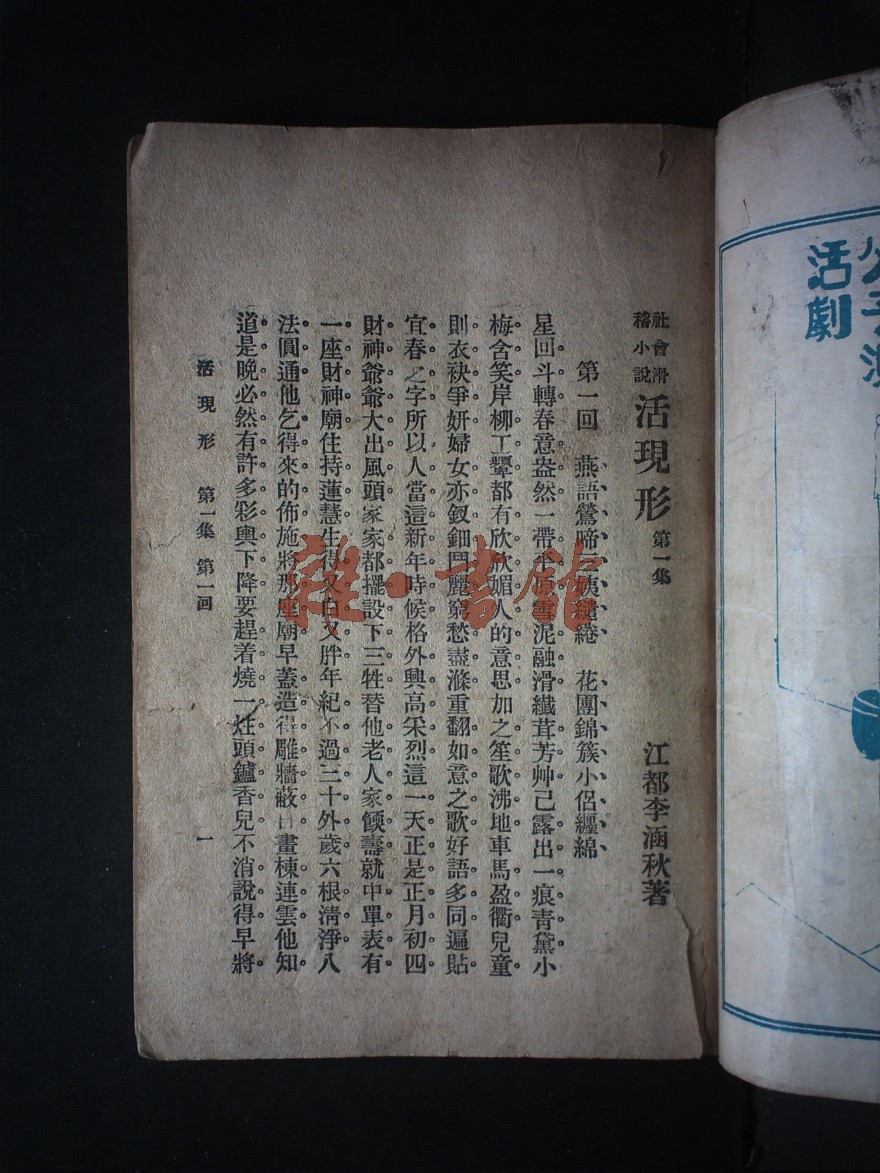 社會滑稽小說 活現形 第一集 江都李涵秋著
第一回 燕語鶯啼 繾綣 花團錦簇小侶纏綿
星回斗轉春意盎然一帶 雪泥融滑纖茸芳艸已露出一痕青黛小
梅含笑岸柳工顰都有欣欣媚人的意思加之笙歌沸地車馬盈衢兒童
則衣袂爭妍婦女亦釵鈿鬥麗窮愁盡滌重翻如意之歌好語多同遍貼
宜春之字所以人當這新年時候格外興高采烈這一天正是正月初四
財神爺爺大出風頭家家都擺設下三牲替他老人家餪壽就中單表有
一座財神廟住持蓮慧生得又白又胖年紀不過三十外歲六根清淨八
法圓通他乞得來的佈施將那座廟早蓋造得雕牆蔽日畫棟連雲他知
道是晚必然有許多彩輿下降要趕着燒一炷頭鑪香兒不消說得早將
活現形 第一集 第一回 一
雜·書館
活劇